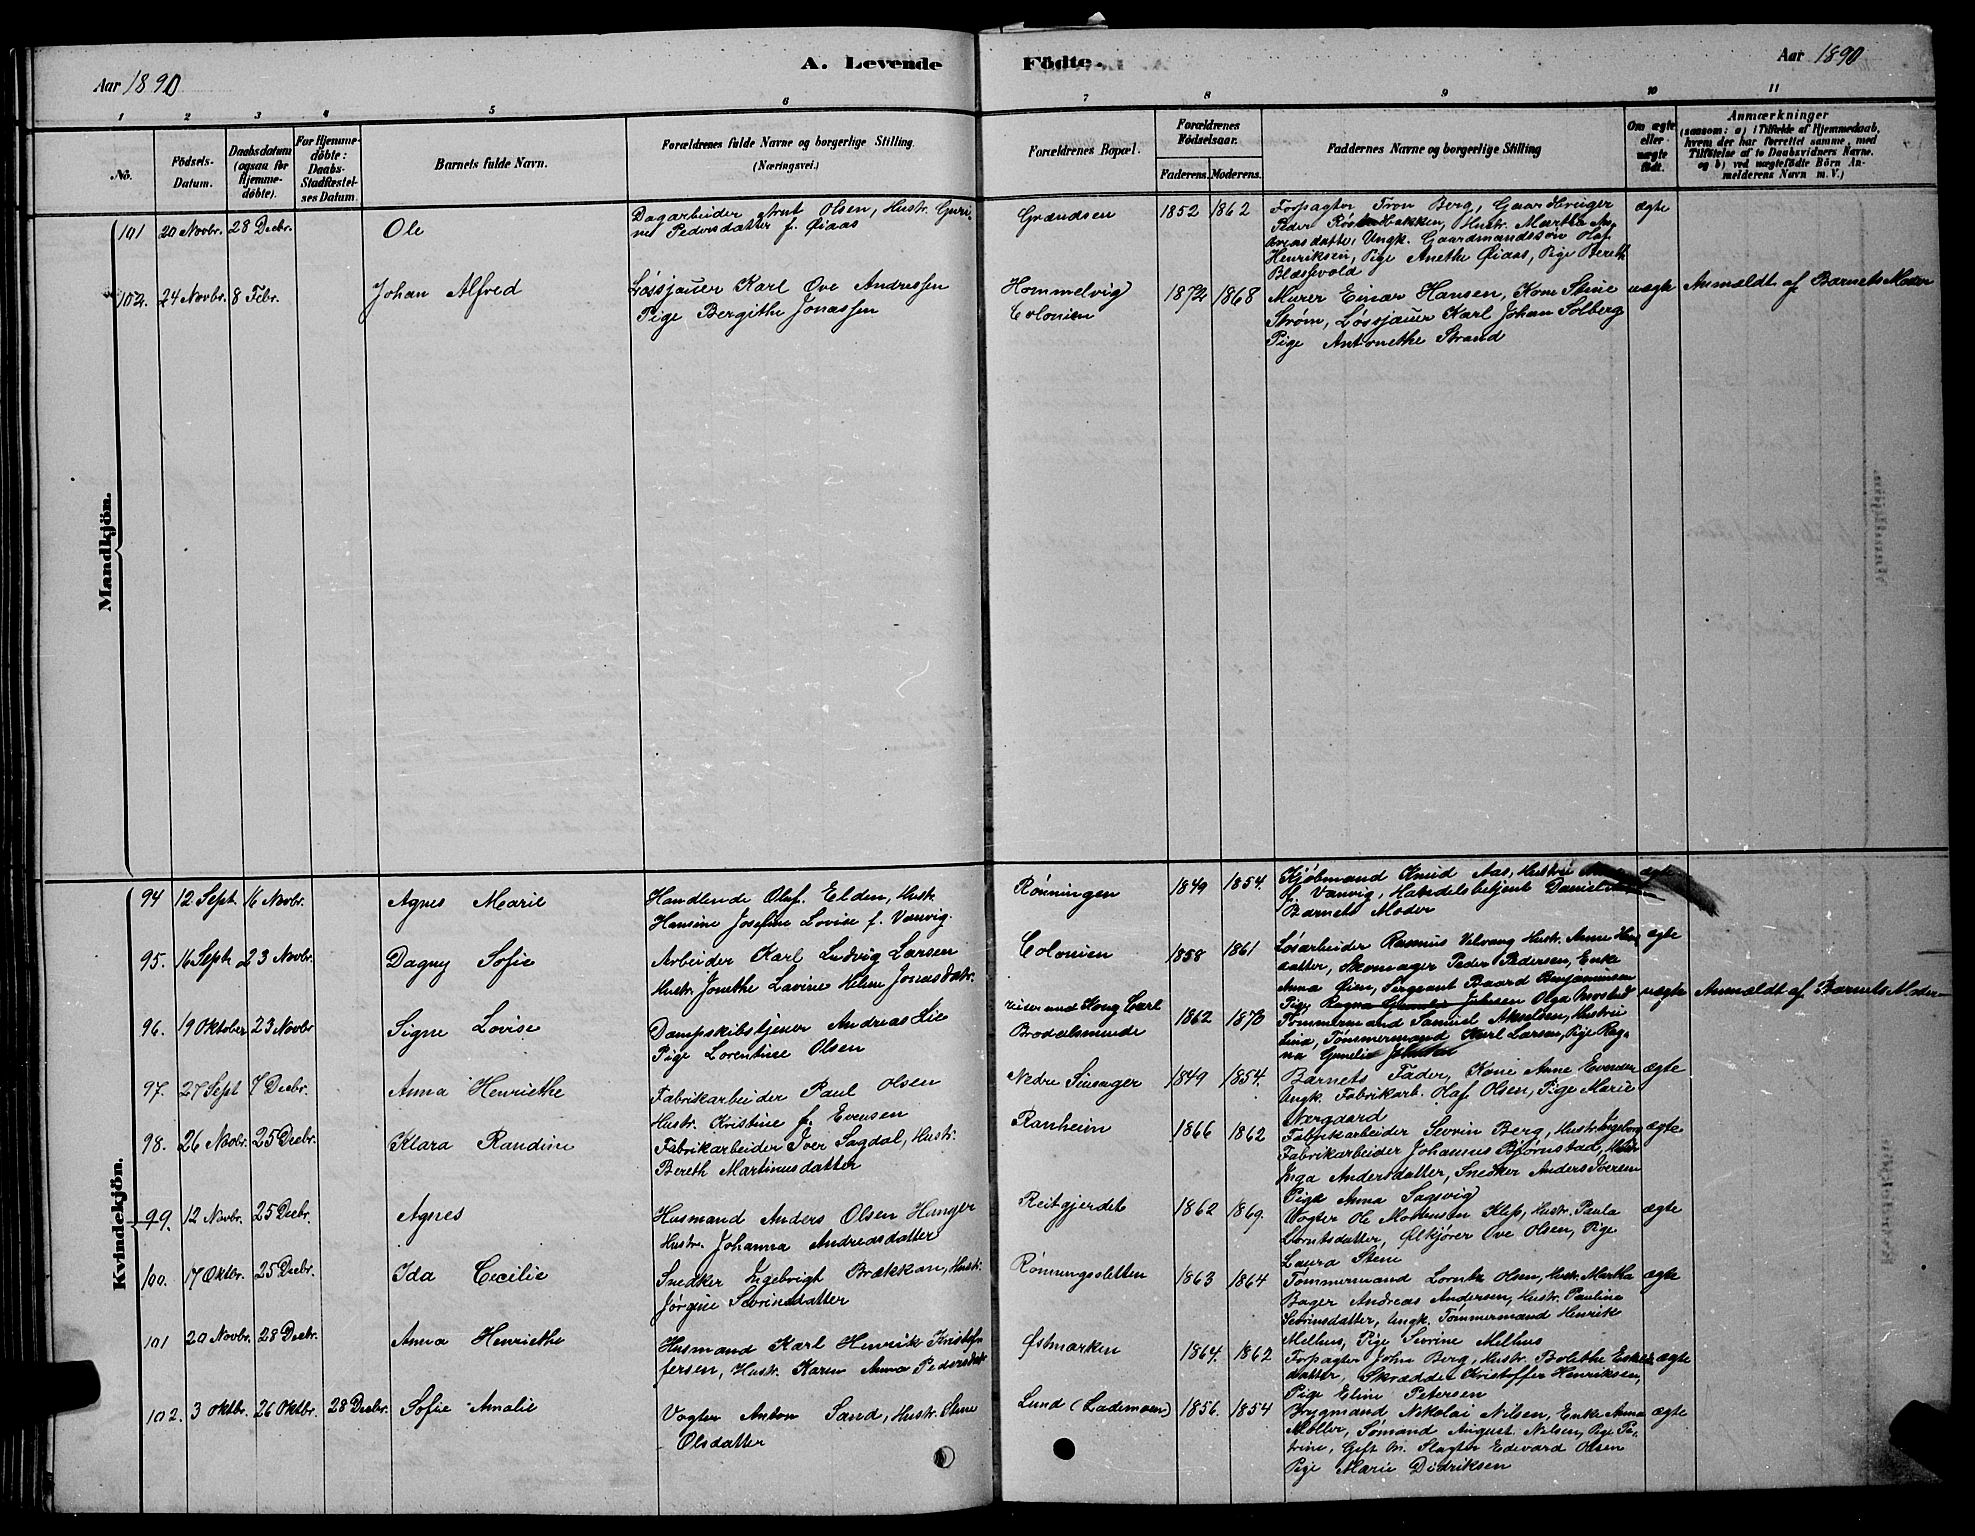 Aar 1890
A. Levende
Födte.
Aar 1890
1 2 3 4 5 6 7 8 9 10 11
No.
Födsels-
Datum.
Daabsdatum
(ogsaa for
Hjemme-
döbte).
For Hjemme-
döbte:
Daabs-
Stadfæstel-
ses Datum.
Barnets fulde Navn.
Forældrenes fulde Navne og borgerlige Stilling.
(Næringsvei.)
Forældrenes Bopæl.
Forældrenes
Födselsaar.
Faderens. Moderens.
Faddernes Navne og borgerlige Stilling
Om ægte
eller
uægte
födt.
Anmærkninger
(saasom: a) i Tilfælde af Hjemmedaab,
hvem der har forrettet samme, med
Tilföielse af to Daabsvidners Navne.
og b) ved uægtefödte Börn An-
melderens Navn m. V.)
Mandkjön.
101 20 Novbr. 28 Decbr.
Ole
Dagarbeider Arnt Olsen, Hustr. Guri-
ne Pedersdatter f. Øiaas
Grændsen
1852 1862
Forpagter Tron Berg, Gaardbruger
Peder Hustr. Martha An-
dreasdatter, Ungk. Gaardmandssøn Olaf
Henriksen, Pige Anethe Øiaas, Pige Bereth
Blæssevold
ægte
102. 24 Novbr. 8 Febr.
Johan Alfred
Løssjauer Karl Ove Andressen
Pige Bergithe Jonassen
Hommelvig
Colonien
1872 1868
Murer Einar Hansen, Kone Stine
Strøm, Løssjauer Karl Johan Solberg
Pige Antonethe Strand
uægte
Anmældt af Barnets Moder
Kvindekjön.
94 12 Sept. 16 Novbr.
Agnes Marie
Handlende Olaf Elden, Hustr.
Hansine Josefine Lovise f. Vanvig.
Rønningen
1849 1854.
Kjøbmand Knud Aas, Hustru
f. Vanvig, Handelsbetjent Daniel
Barnets Moder
ægte
95. 16 Sept. 23 Novbr.
Dagny Sofie
Arbeider Karl Ludvig Larsen
Hustr. Jonethe Lavine Helene Jonasdatr.
Colonien
1858 1861
Løsarbeider Rasmus Velvang Hustr. Anne Han-
datter, Skomager Peder Pedersen, Enke
Anna Øien, Sergeant Baard Benjaminsen
Pige Olga
ægte
96. 19 Oktober 23 Novbr
Signe Lovise
Dampskibstjener Andreas Lie
Pige Lorentine Olsen
Kong Carl
Brodalsminde
1862 1870
Tømmermand Samuel Akselsen, Hustru
Lina, Tømmermand Karl Larsen, Pige Rag-
na Gunelie Johnsen
uægte
Anmældt af Barnets Moder
97. 27 Sept 7 Decbr.
Anna Henriethe
Fabrikarbeider Paul Olsen
Hustr. Kristine f. Evensen
Nedre Sinsager
1849 1854.
Barnets Fader, Kone Anne Evensen
Ungk. Fabrikarb. Olaf Olsen, Pige Marie
Nærgaard
ægte
98. 26 Novbr. 25 Decbr.
Klara Randine
Fabrikarbeider Iver Sagdal, Hustr.
Bereth Martinusdatter
Ranheim
1866 1862
Fabrikarbeider Sevrin Berg, Hustr. Ingeborg
Fabrikarbeider Johannes Bjørnstad, Hustr.
Inga Andersdatter, Snedker Anders Iversen
Pige Anna Sagsvig
ægte
99. 12 Novbr. 25 Decbr.
Agnes
Husmand Anders Olsen Hanger
Hustr. Johanna Andreasdatter
Reitgjerdet
1862 1869.
Vogter Ole Mortensen Klep, Hustr. Paula
Lorntsdatter, Ølkjører Ove Olsen, Pige
Laura Stene
ægte
100. 17 Oktbr. 25 Decbr.
Ida Cecilie
Snedker Ingebrigt Brækkan, Hustr.
Jørgine Sevrinsdatter
Rønningsletten
1863 1864
Tømmermand Lornts Olsen, Hustr. Martha
Bager Andreas Andersen, Hustr. Pauline
Sevrinsdatter, Ungk. Tømmermand Henrik
Melhus, Pige Sevrine Melhus
ægte
101 20 Novbr. 28 Decbr.
Anna Henriethe
Husmand Karl Henrik Kristof-
fersen, Hustr. Karen Anna Pedersdatr
Østmarken
1864. 1862
Forpagter John Berg, Hustr. Bolethe Eskels-
datter, Skrædder Kristoffer Henriksen,
Pige Eline Petersen
ægte
102. 3 Oktbr. 26 Oktbr. 28 Decbr.
Sofie Amalie
Vogter Anton Sand, Hustr. Stine
Olsdatter
Lund (Lademoen)
1856. 1854
Brygmand Nikolai Nilsen, Enke Anna
Møller, Sømand August Nilsen, Pige Pe-
trine, Gift M. Slagter Edevard Olsen
Pige Marie Didriksen
ægte